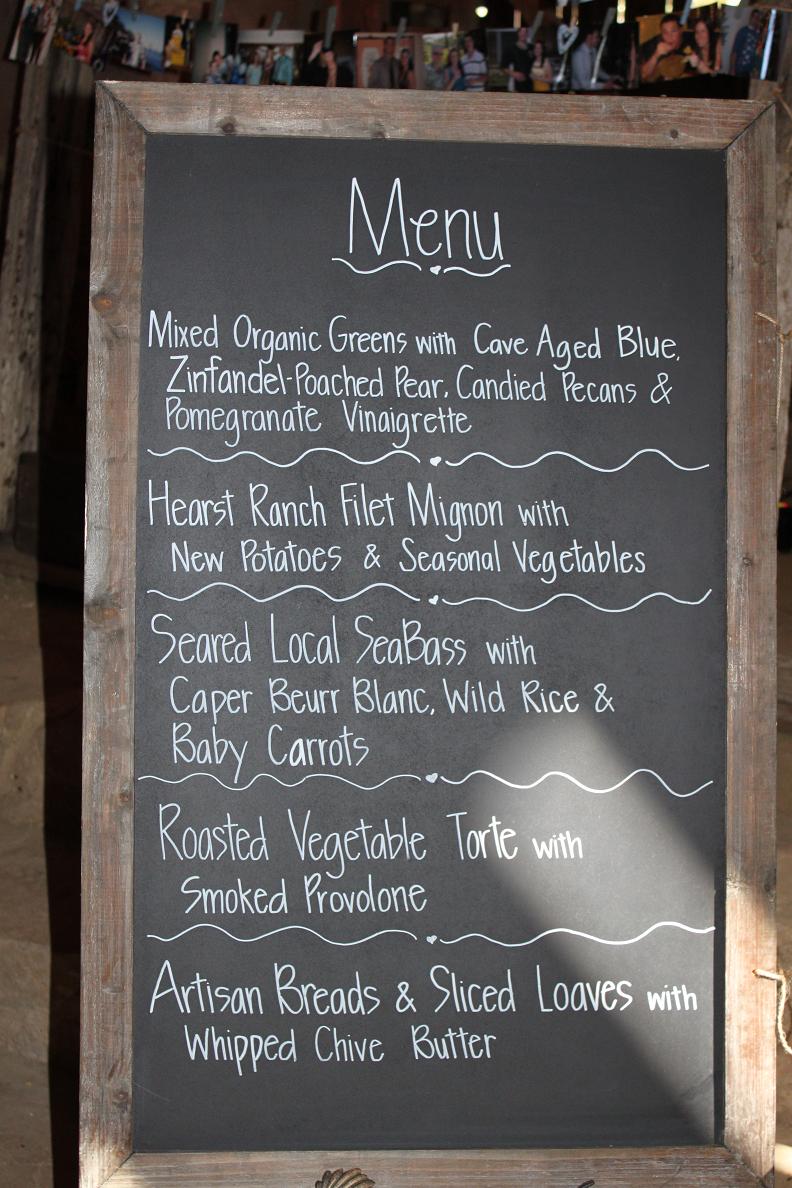 Menu
Mixed Organic Greens with Cave Aged Blue,
Zinfandel-Poached Pear, Candied Pecans &
Pomegranate Vinaigrette
Hearst Ranch Filet Mignon with
New Potatoes & Seasonal Vegetables
Seared Local SeaBass with
Caper Beurr Blanc, Wild Rice &
Baby Carrots
Roasted Vegetable Torte with
Smoked Provolone
Artisan Breads & Sliced Loaves with
Whipped Chive Butter